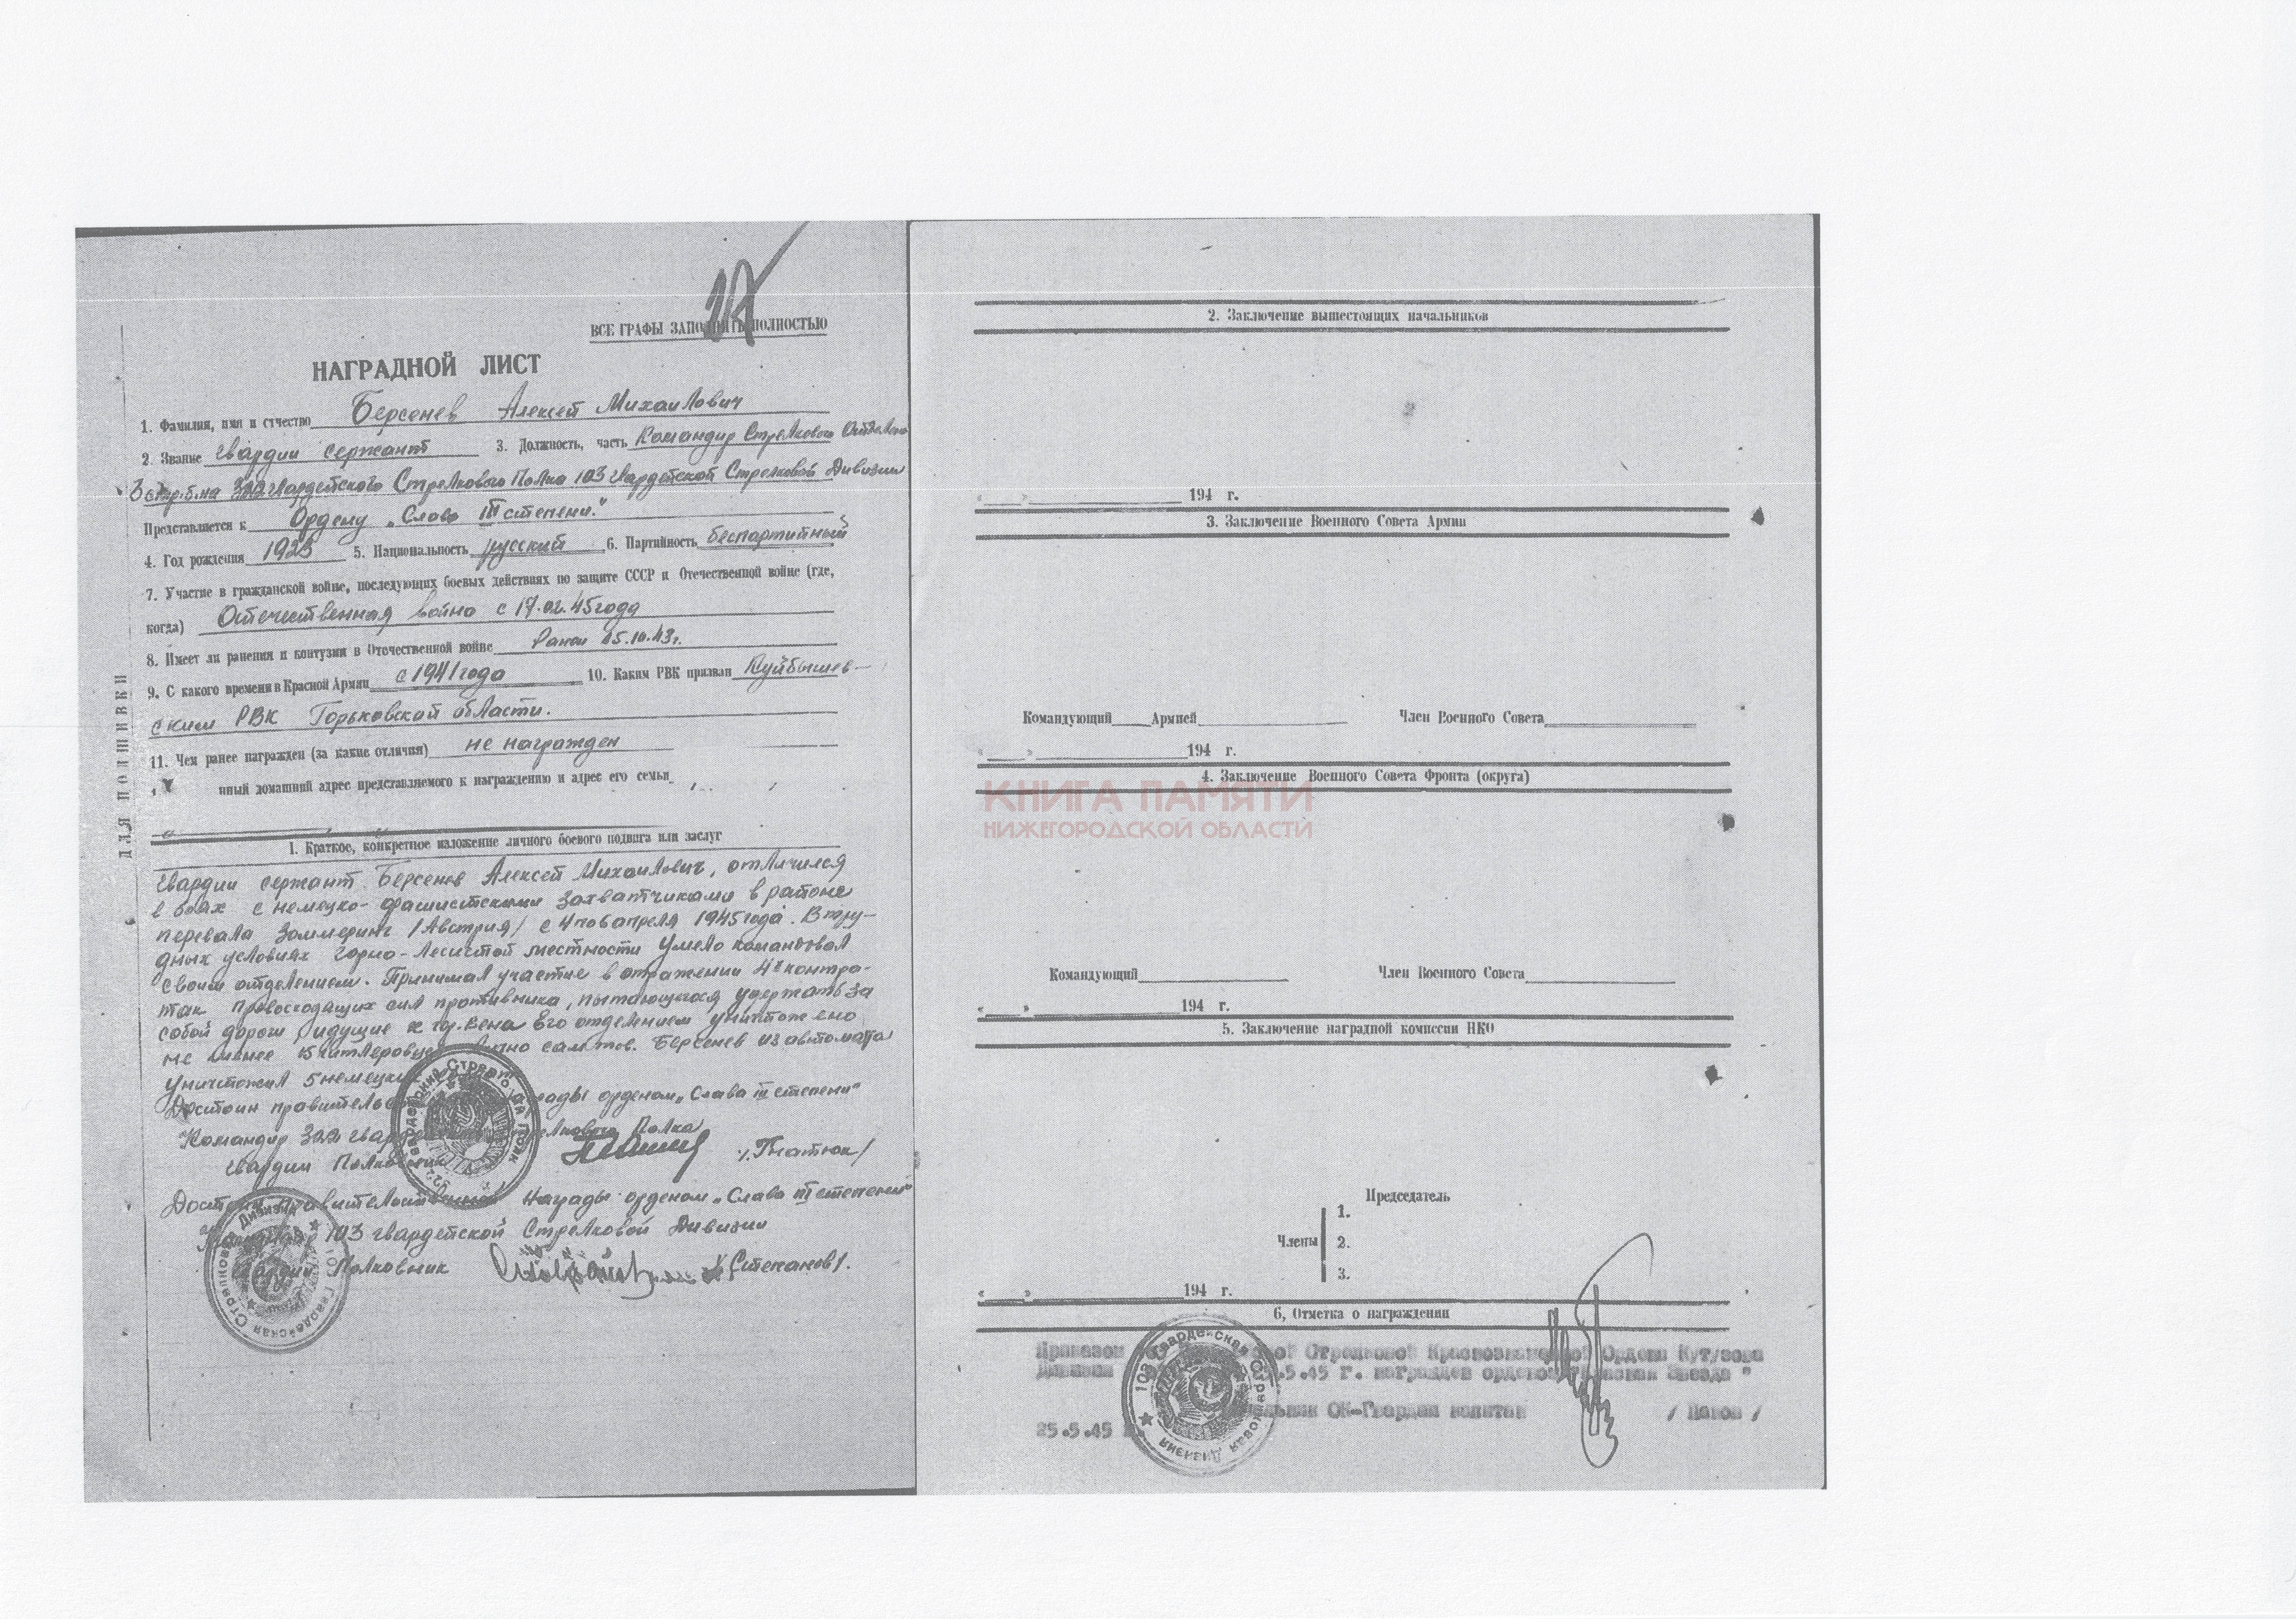 ВСЕ ГРАФЫ ЗАПОЛНЯТЬ ПОЛНОСТЬЮ
НАГРАДНОЙ ЛИСТ
1. Фамилия, имя и отчество Берсенев Алексей Михайлович
2. Звание гвардии сержант 3. Должность, часть Командир Стрелкового Отделения
3 стр. б-на 322 гвардейского Стрелкового Полка 103 гвардейской Стрелковой Дивизии
Представляется к Ордену „Слава III степени."
4. Год рождения 1923 5. Национальность русский 6. Партийность беспартийный
7. Участие в гражданской войне, последующих боевых действиях по защите СССР и Отечественной войне (где,
когда) Отечественная война с 17.02.45 года
8. Имеет ли ранения и контузии в Отечественной войне Ранен 15.10.43 г.
9. С какого времени в Красной Армии с 1941 года 10. Каким РВК призван Куйбышев-
ским РВК Горьковской области.
11. Чем ранее награжден (за какие отличия) не награжден
нный домашний адрес представляемого к награждению и адрес его семьи
ДЛЯ ПОДШИВКИ
1. Краткое, конкретное изложение личного боевого подвига или заслуг
гвардии сержант Берсенев Алексей Михайлович, отличился
в боях с немецко-фашистскими захватчиками в районе
перевала Зоммеринг /Австрия/ с 4 по 6 апреля 1945 года. В тру-
дных условиях горно-лесистой местности умело командовал
своим отделением. Принимал участие в отражении 4х контра-
так превосходящих сил противника, пытающегося удержать за
собой дороги, идущие к гор. Вена. Его отделением уничтожено
не менее 15 гитлеровцев лично сам тов. Берсенев из автомата
уничтожил 5 немецких
Достоин правительственной награды орденом „Слава III степени"
Командир 322 гвардейского Стрелкового Полка
гвардии Полковник /Гнатюк/
Достоин правительственной награды орденом „Слава III степени"
Командир 103 гвардейской Стрелковой Дивизии
Гвардии Полковник /Степанов/.
2. Заключение вышестоящих начальников
194 г.
3. Заключение Военного Совета Армии
Командующий Армией Член Военного Совета
194 г.
4. Заключение Военного Совета Фронта (округа)
КНИГА ПАМЯТИ
НИЖЕГОРОДСКОЙ ОБЛАСТИ
Командующий Член Военного Совета
194 г.
5. Заключение наградной комиссии НКО
Председатель
Члены
1.
2.
3.
194 г.
6, Отметка о награждении
Приказом Стрелковой Краснознаменной Ордена Кутузова
Дивизии .5.45 г. награжден орденом "Красная Звезда"
ОК-Гвардии капитан
25.5.45
103 Гвардейская Стрелковая Дивизия